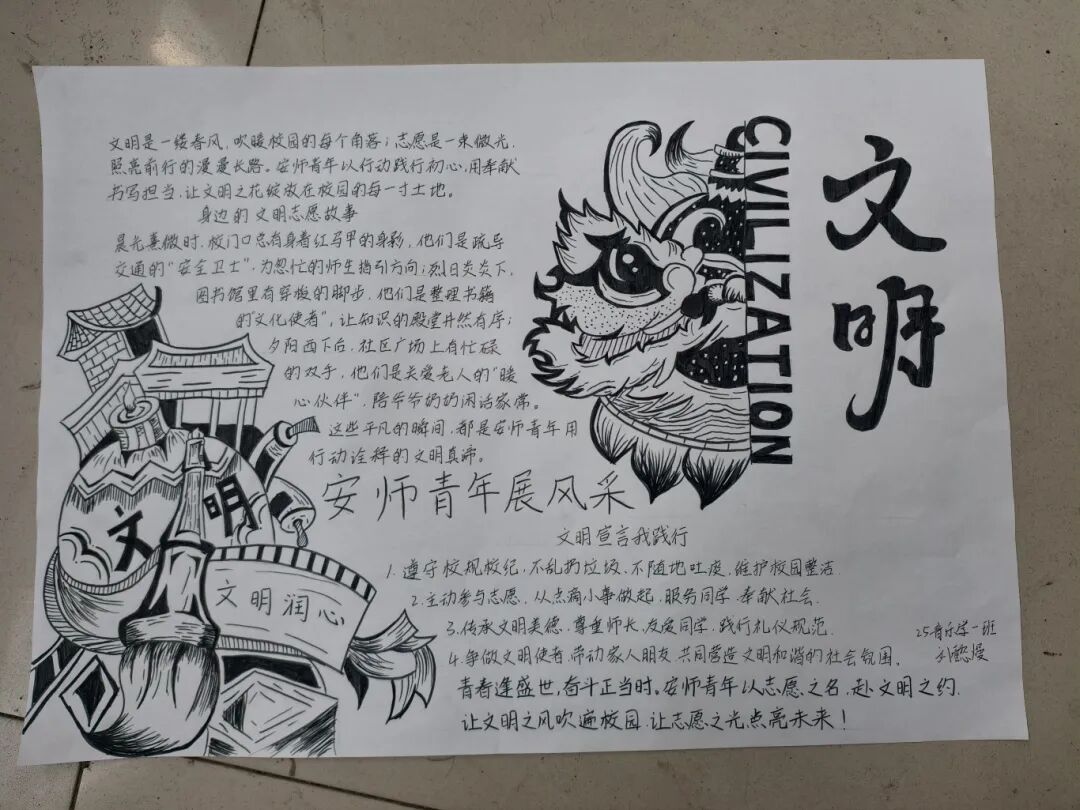 文明是一缕春风，吹暖校园的每个角落；志愿是一束微光，
照亮前行的漫漫长路。安师青年以行动践行初心，用奉献
书写担当，让文明之花绽放在校园的每一寸土地。
身边的文明志愿故事
晨光熹微时，校门口总有身着红马甲的身影，他们是疏导
交通的“安全卫士”，为忽忙的师生指引方向；烈日炎炎下，
图书馆里有穿梭的脚步，他们是整理书籍
的“文化使者”，让知识的殿堂井然有序；
夕阳西下后，社区广场上有忙碌
的双手，他们是关爱老人的“暖
心伙伴”，陪爷爷奶奶闲话家常。
这些平凡的瞬间，都是安师青年用
行动诠释的文明真谛。
安师青年展风采
文明宣言我践行
1.遵守校规校纪，不乱扔垃圾，不随地吐痰，维护校园整洁
2.主动参与志愿，从点滴小事做起，服务同学，奉献社会.
3.传承文明美德，尊重师长，友爱同学，践行礼仪规范.
4.争做文明使者，带动家人朋友，共同营造文明和谐的社会氛围.
青春逢盛世，奋斗正当时。安师青年以志愿之名，赴文明之约.
让文明之风吹遍校园，让志愿之光点亮未来！
文明
CIVILIZATION
文明
文明润心
25音乐学一班